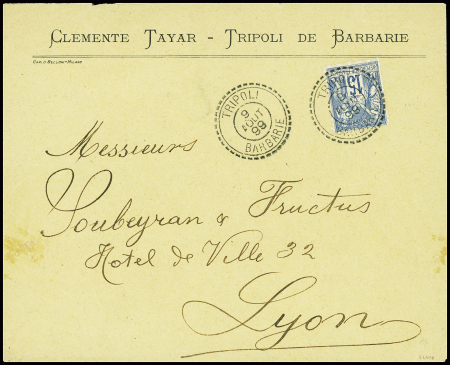 CLEMENTE TAYAR - TRIPOLI DE BARBARIE
CARLO BELLONI-MILANO
TRIPOLI
6
AOUT
99
BARBARIE
15
Messieurs
Soubeyran & Fructus
Hotel de Ville 32
Lyon